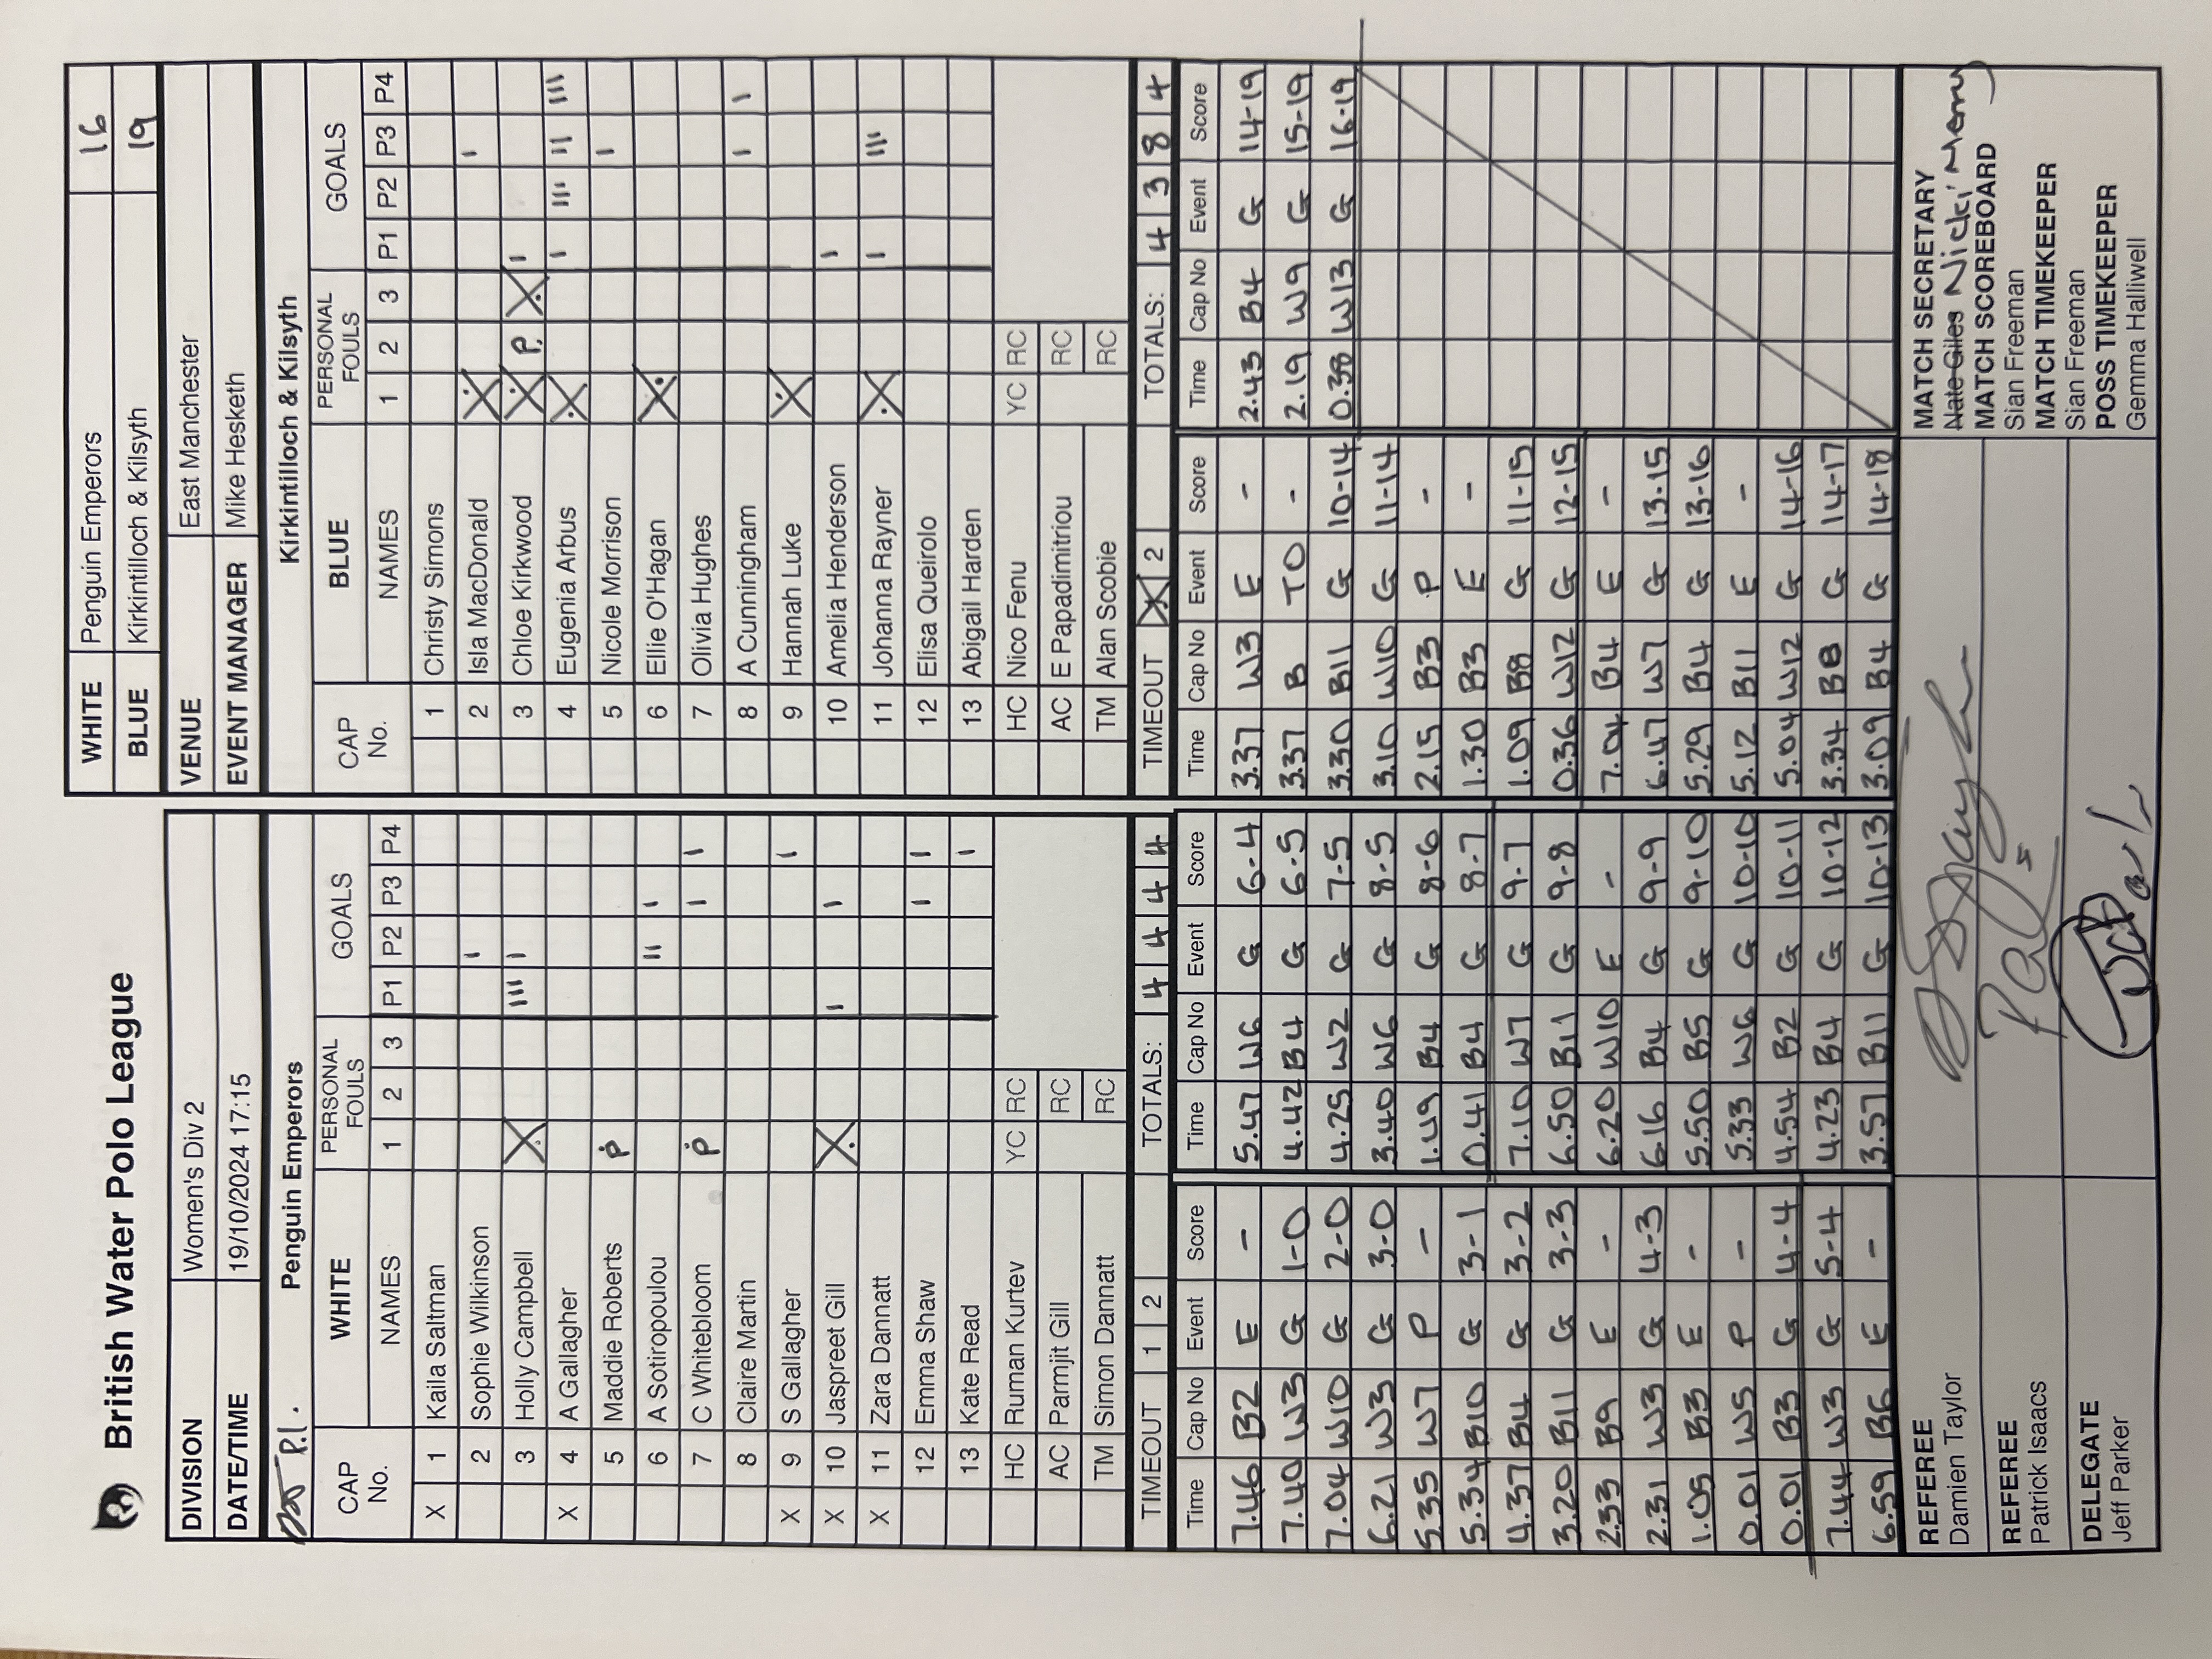 British Water Polo League
WHITE Penguin Emperors 16
BLUE Kirkintilloch & Kilsyth 19
DIVISION Women's Div 2
DATE/TIME 19/10/2024 17:15
VENUE East Manchester
EVENT MANAGER Mike Hesketh
P.I. Penguin Emperors
CAP No. WHITE NAMES PERSONAL FOULS 1 2 3 GOALS P1 P2 P3 P4
X 1 Kaila Saltman
2 Sophie Wilkinson I
3 Holly Campbell X III I
X 4 A Gallagher
5 Maddie Roberts P
6 A Sotiropoulou II I
7 C Whitebloom P I I
8 Claire Martin
X 9 S Gallagher I
X 10 Jaspreet Gill X I I
X 11 Zara Dannatt
12 Emma Shaw I I
13 Kate Read I
HC Ruman Kurtev YC RC
AC Parmjit Gill RC
TM Simon Dannatt RC
TIMEOUT 1 2 TOTALS: 4 4 4 4
Kirkintilloch & Kilsyth
CAP No. BLUE NAMES PERSONAL FOULS 1 2 3 GOALS P1 P2 P3 P4
1 Christy Simons
2 Isla MacDonald X I
3 Chloe Kirkwood X P. X I
4 Eugenia Arbus X I III II III
5 Nicole Morrison I
6 Ellie O'Hagan X
7 Olivia Hughes
8 A Cunningham I I
9 Hannah Luke X
10 Amelia Henderson I
11 Johanna Rayner X I III
12 Elisa Queirolo
13 Abigail Harden
HC Nico Fenu YC RC
AC E Papadimitriou RC
TM Alan Scobie RC
TIMEOUT X 2 TOTALS: 4 3 8 4
Time Cap No Event Score
7.46 B2 E -
7.40 W3 G 1-0
7.04 W10 G 2-0
6.21 W3 G 3-0
5.35 W7 P -
5.34 B10 G 3-1
4.37 B4 G 3-2
3.20 B11 G 3-3
2.33 B9 E -
2.31 W3 G 4-3
1.05 B3 E -
0.01 W5 P -
0.01 B3 G 4-4
7.44 W3 G 5-4
6.59 B6 E -
Time Cap No Event Score
5.47 W6 G 6-4
4.42 B4 G 6-5
4.25 W2 G 7-5
3.40 W6 G 8-5
1.49 B4 G 8-6
0.41 B4 G 8-7
7.10 W7 G 9-7
6.50 B11 G 9-8
6.20 W10 E -
6.16 B4 G 9-9
5.50 B5 G 9-10
5.33 W6 G 10-10
4.54 B2 G 10-11
4.23 B4 G 10-12
3.57 B11 G 10-13
Time Cap No Event Score
3.37 W3 E -
3.37 B TO -
3.30 B11 G 10-14
3.10 W10 G 11-14
2.15 B3 P -
1.30 B3 E -
1.09 B8 G 11-15
0.36 W12 G 12-15
7.04 B4 E -
6.47 W7 G 13-15
5.29 B4 G 13-16
5.12 B11 E -
5.04 W12 G 14-16
3.34 B8 G 14-17
3.09 B4 G 14-18
Time Cap No Event Score
2.43 B4 G 14-19
2.19 W9 G 15-19
0.38 W13 G 16-19
REFEREE
Damien Taylor
REFEREE
Patrick Isaacs
DELEGATE
Jeff Parker
MATCH SECRETARY
Nate Giles Nicki Merry
MATCH SCOREBOARD
Sian Freeman
MATCH TIMEKEEPER
Sian Freeman
POSS TIMEKEEPER
Gemma Halliwell